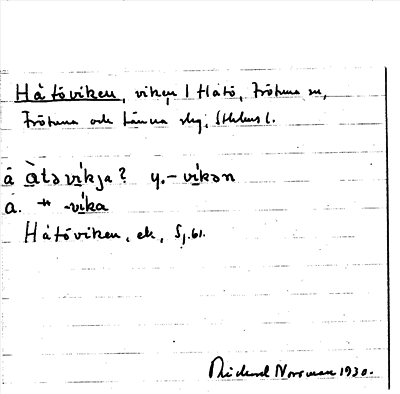 Håtöviken, viken / Håtö, Frötuna sn,
Frötuna och Länna slg, Sthlms l.
å à̀təvikja? y.- vikən
a. " -vika
Håtöviken, ek, Sj. 61.
Rickard Norrman 1930.